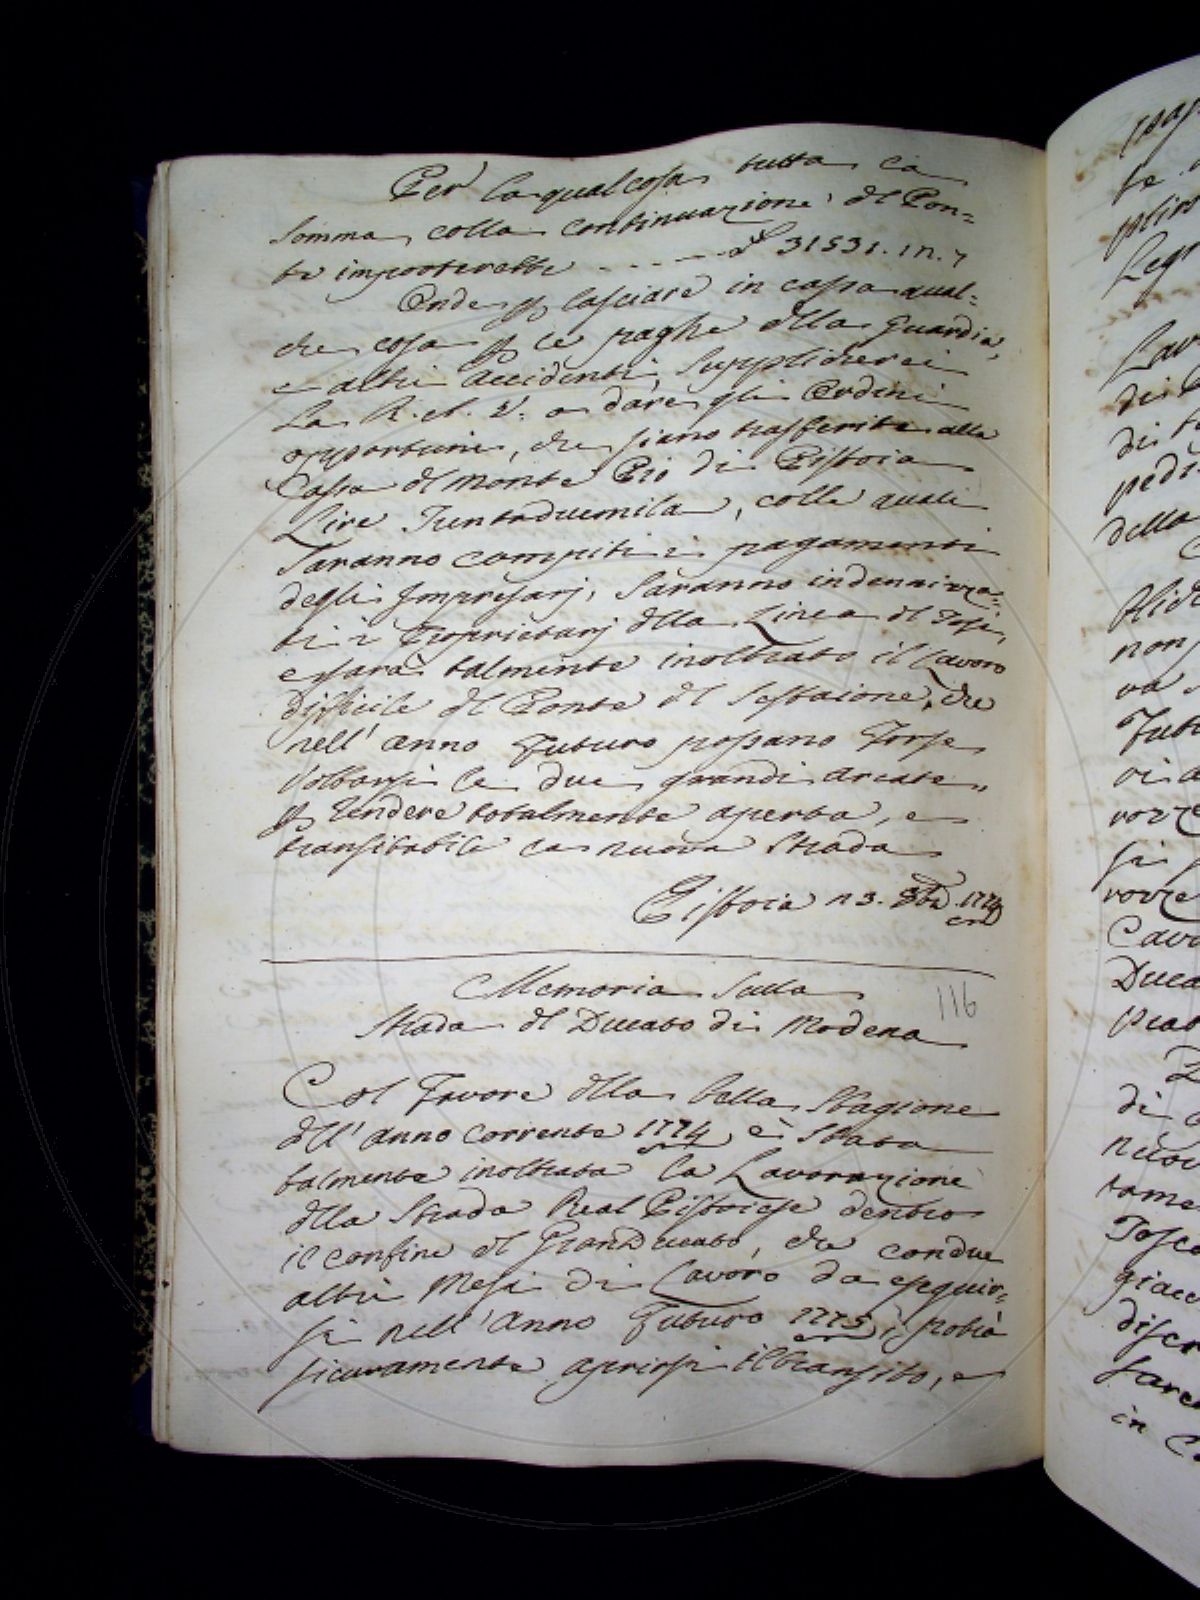 Per la qual cosa tutta la
somma colla continuazione del Pon=
te importerebbe ----- £ 31531. 12. 7
Onde p lasciare in cassa qual=
che cosa p le paghe della Guardia,
e altri accidenti, supplicherei
La R. A. V. a dare gli Ordini
opportuni, che siano trasferite alla
Cassa del Monte Pio di Pistoia
Lire Trentaduemila, colle quali
saranno compiti i pagamenti
degli Impresarj, saranno indennizza=
ti i Proprietarj della Linea del
e sarà talmente inoltrato il Lavoro
difficile del Ponte del Sestaione, che
nell' anno Futuro possano Forse
Voltarsi le due grandi arcate,
p rendere totalmente aperta, e
transitabile la nuova Strada
Pistoia 8bre 1774
Memoria Sulla
Strada del Ducato di Modena
116
Col Favore della bella Stagione
dell' anno corrente 1774, è Stata
talmente inoltrata la Lavorazione
della Strada Real Pistoiese dentro
il confine del GranDucato, che con due
altri Mesi di Lavoro da eseguir=
si nell' Anno Futuro 1775, potrà
sicuramente aprirsi il transito, e
pedi
della
non
Cavo
Duca
di
nuov
tame
Tosca
giacc
in